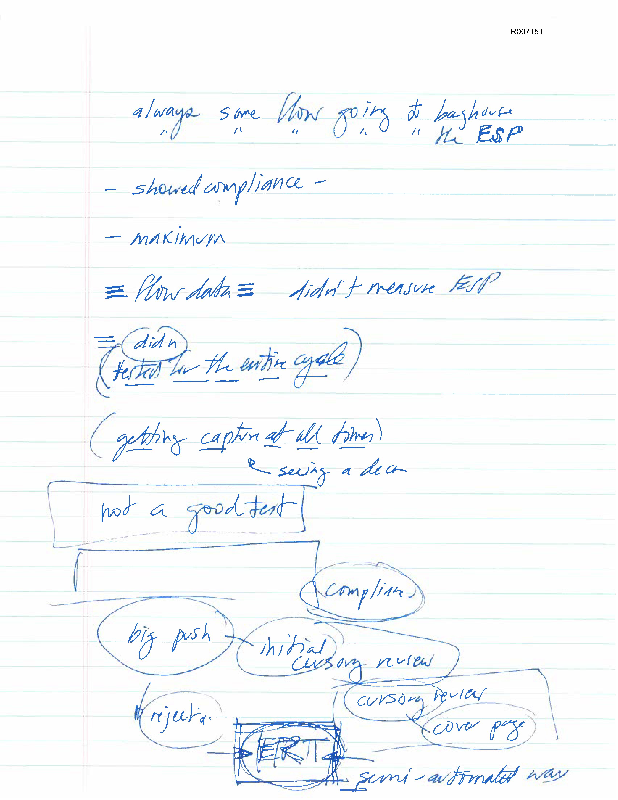 R007151
always some flow going to baghouse
" " " " " the ESP
- showed compliance -
- maximum
≡ flow data ≡ didn't measure ESP
≡ didn
(tested for the entire cycle)
(getting capture at all times)
seeing a
not a good test
complian
big push initial
cursory review
reject a.
cursory review
cover page
ERT
semi-automated way